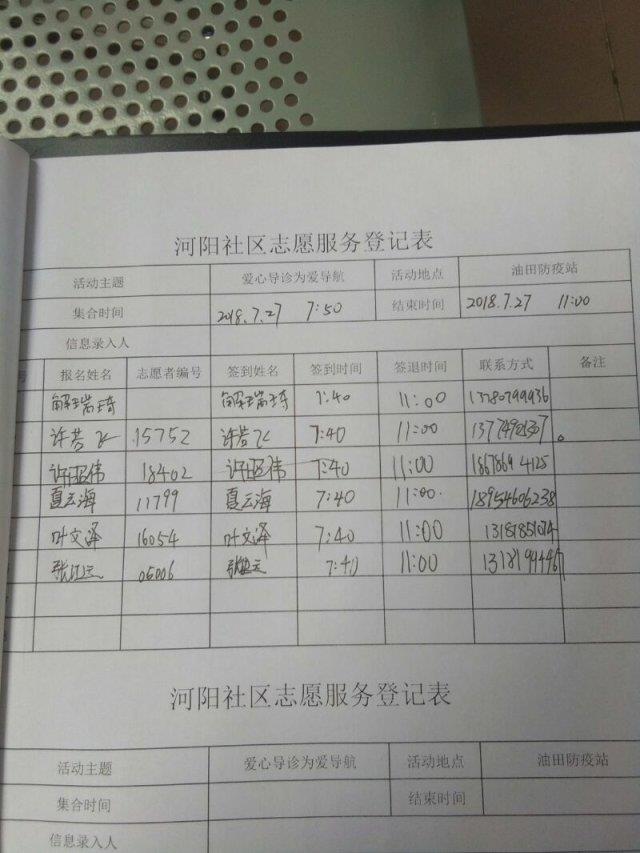 河阳社区志愿服务登记表
活动主题 爱心导诊为爱导航 活动地点 油田防疫站
集合时间 2018.7.27 7:50 结束时间 2018.7.27 11:00
信息录入人
号 报名姓名 志愿者编号 签到姓名 签到时间 签退时间 联系方式 备注
解瑞琦 解瑞琦 7:40 11:00 13780799936
许若飞 15752 许若飞 7:40 11:00
18402 7:40 11:00 18678694125
夏云海 11799 夏云海 7:40 11:00. 18954606238
叶文泽 16054 叶文泽 7:40 11:00 13181851074
05006 7:40 11:00
河阳社区志愿服务登记表
活动主题 爱心导诊为爱导航 活动地点 油田防疫站
集合时间 结束时间
信息录入人